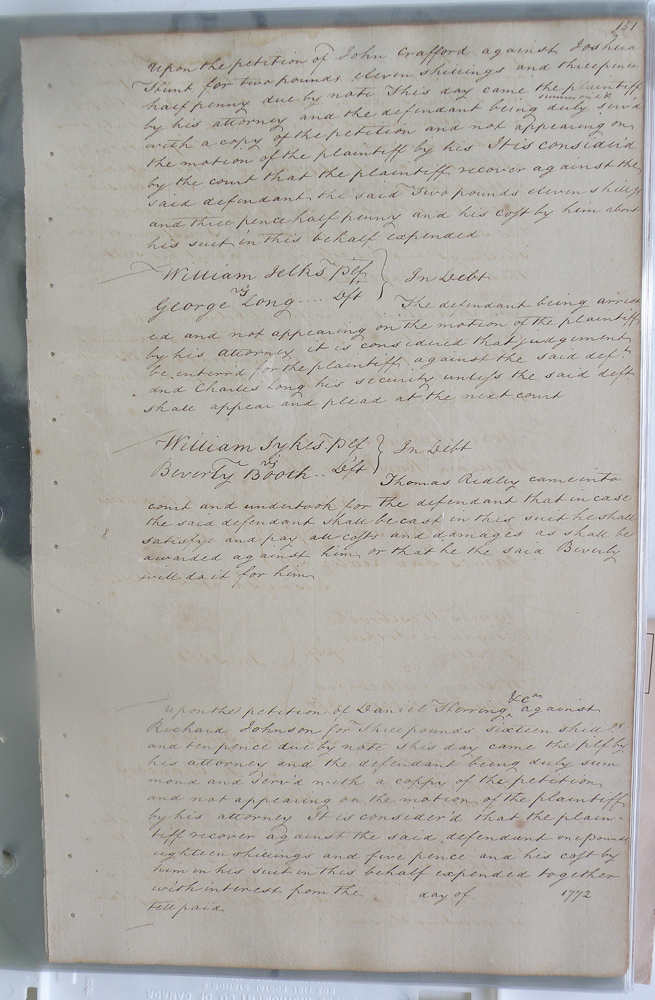 151
Upon the petition of John Crafford against Joshua
Thunt for two pounds eleven shillings and three pence
half penny due by note This day came the plaintiff
by his attorney and the defendant being duly summon'd & serv'd
with a copy of the petition and not appearing on
the motion of the plaintiff by his It is consider'd
by the court that the plaintiff recover against the
said defendant the said Two pounds eleven shills
and three pence half penny and his cost by him about
his suit in this behalf expended
William Jelks Plf } In Debt
vs
George Long .... Dft
The defendant being arrest
ed and not appearing on the motion of the plaintiff
by his attorney it is considered that judgement
be enterrd for the plaintiff against the said deft
and Charles Long his security unless the said deft
shall appear and plead at the next court
William Sykes Plf } In Debt
vs
Beverly Booth .. Dft
Thomas Ridley came into
court and undertook for the defendant that in case
the said defendant shall be cast in this suit he shall
satisfye and pay all costs and damages as shall be
awarded against him or that he the said Beverly
will do it for him
Upon the petition of Daniel Herring against
Richard Johnson for three pounds sixteen shill gs
and ten pence due by note This day came the plf by
his attorney and the defendant being duly sum
mond and serv'd with a coppy of the petition
and not appearing on the motion of the plaintiff
by his attorney It is consider'd that the plain-
tiff recover against the said defendant one pound
eighteen shillings and five pence and his cost by
him in his suit in this behalf expended together
with interest from the day of 1772
till paid